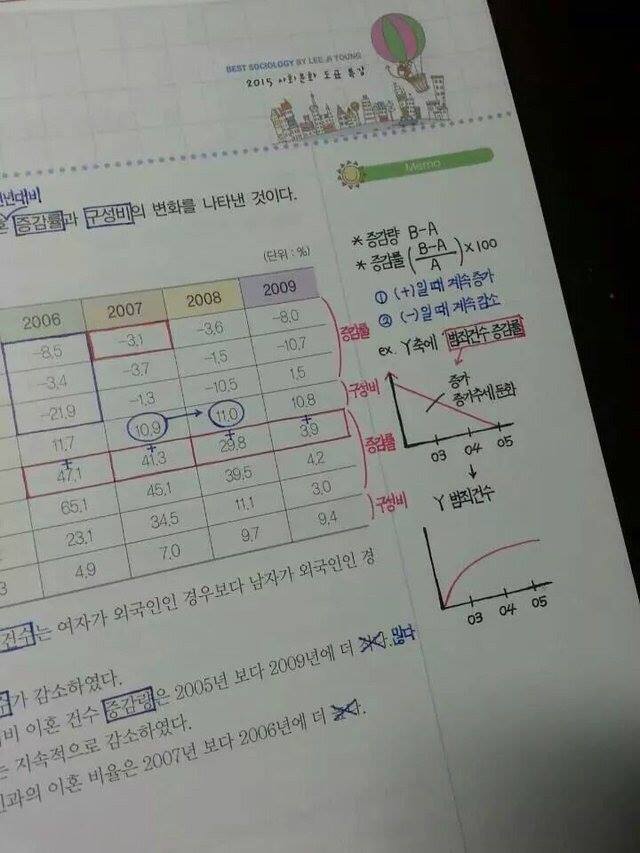 BEST SOCIOLOGY BY LEE JI YOUNG
2015 사회문화 도표 특강
Memo
전년대비
증감률과 구성비의 변화를 나타낸 것이다.
(단위 : %)
2006 2007 2008 2009
-8.5 -3.1 -3.6 -8.0
-3.4 -3.7 -1.5 -10.7
-21.9 -1.3 -10.5 1.5
11.7 10.9 → 11.0 10.8
+ + + +
47.1 41.3 29.8 3.9
65.1 45.1 39.5 4.2
23.1 34.5 11.1 3.0
4.9 7.0 9.7 9.4
증감률
구성비
증감률
구성비
* 증감량 B-A
* 증감률 (B-A/A)×100
① (+)일 때 계속 증가
② (-)일 때 계속 감소
ex. Y축에 범죄건수 증감률
증가
증가추세 둔화
03 04 05
↓
Y 범죄건수
03 04 05
건수는 여자가 외국인인 경우보다 남자가 외국인인 경
가 감소하였다.
비 이혼 건수 증감량은 2005년 보다 2009년에 더 많다
는 지속적으로 감소하였다.
인과의 이혼 비율은 2007년 보다 2006년에 더